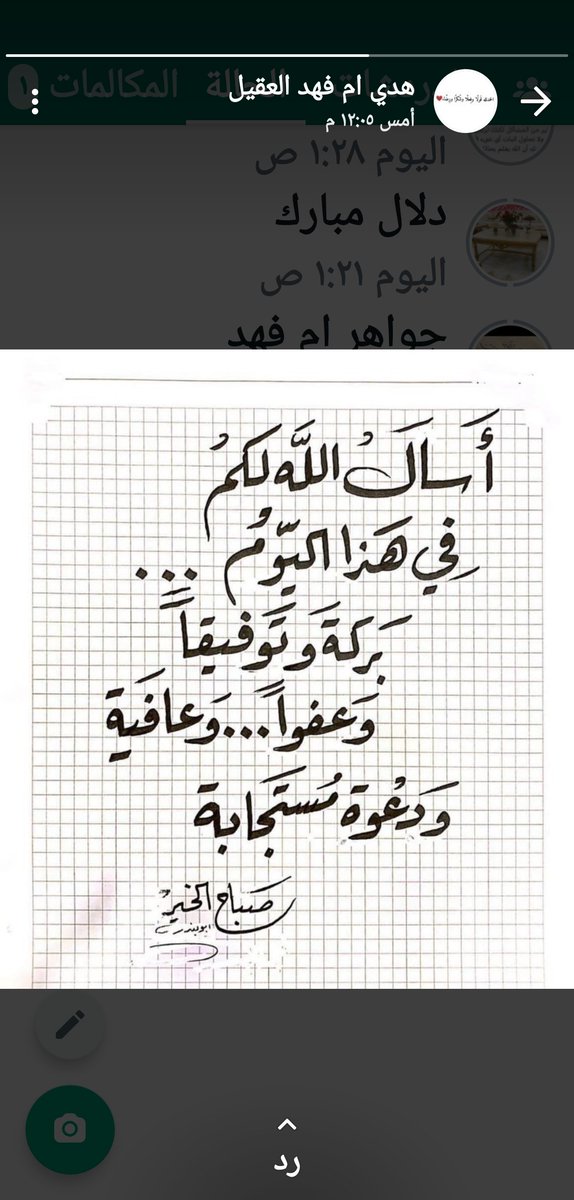 هدي ام فهد العقيل
أمس ١٢:٠٥ م
الحالة
المكالمات
١
اليوم ١:٢٨ ص
دلال مبارك
اليوم ١:٢١ ص
جواهر ام فهد
أَسأَلُ اللَّه لكمُ
فِي هَذا اليَّومُ ...
بَركَةَ وتَوفيقاً
وَعفواً...وَعافَية
وَدَعْوة مُستَجابة
صَباح الخيرْ
ابوبندر
رد